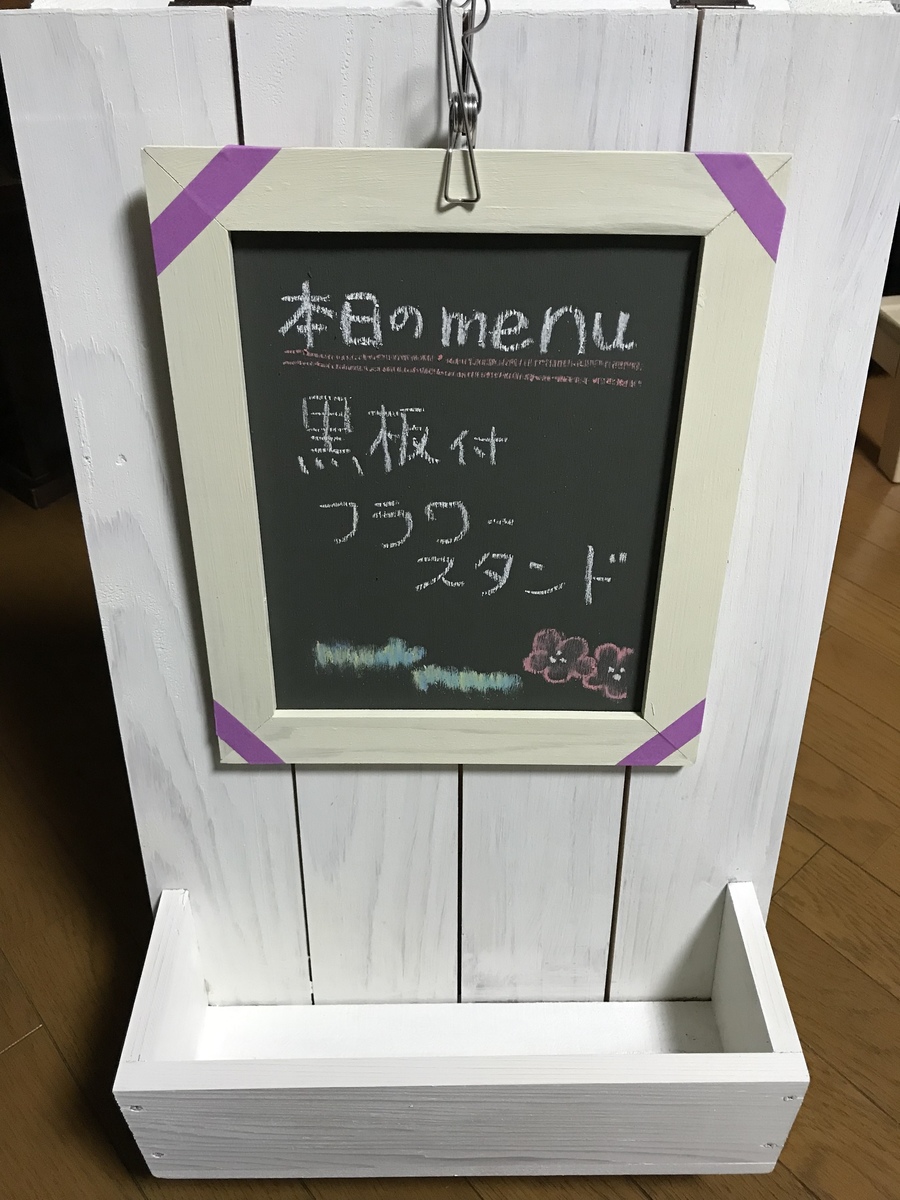 本日のmenu
黒板付
フラワー
スタンド